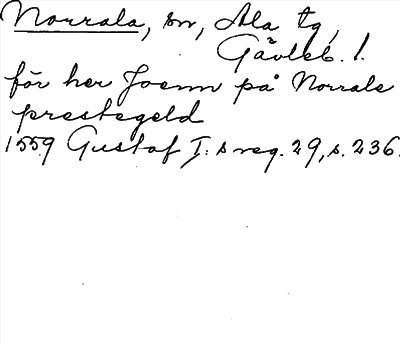 Norrala, sn, Ala tg,
Gävleb. l.
för her Joenn på Norrale
prestegeld
1559 Gustaf I:s reg. 29, s. 236.